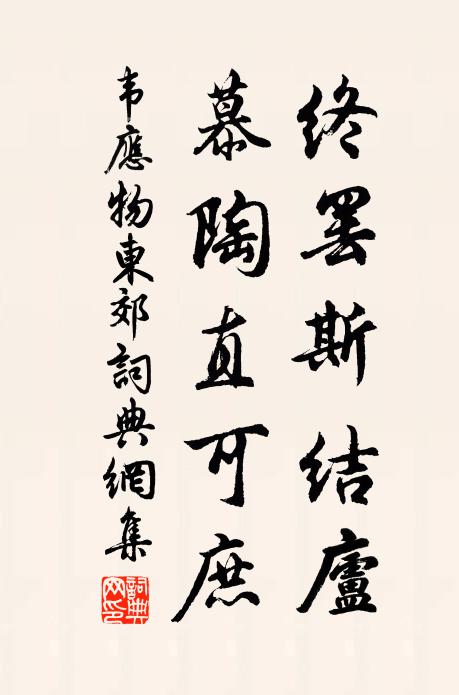 终罢斯结廬
慕陶直可庶
韦應物東郊詞典網集
詞典网印